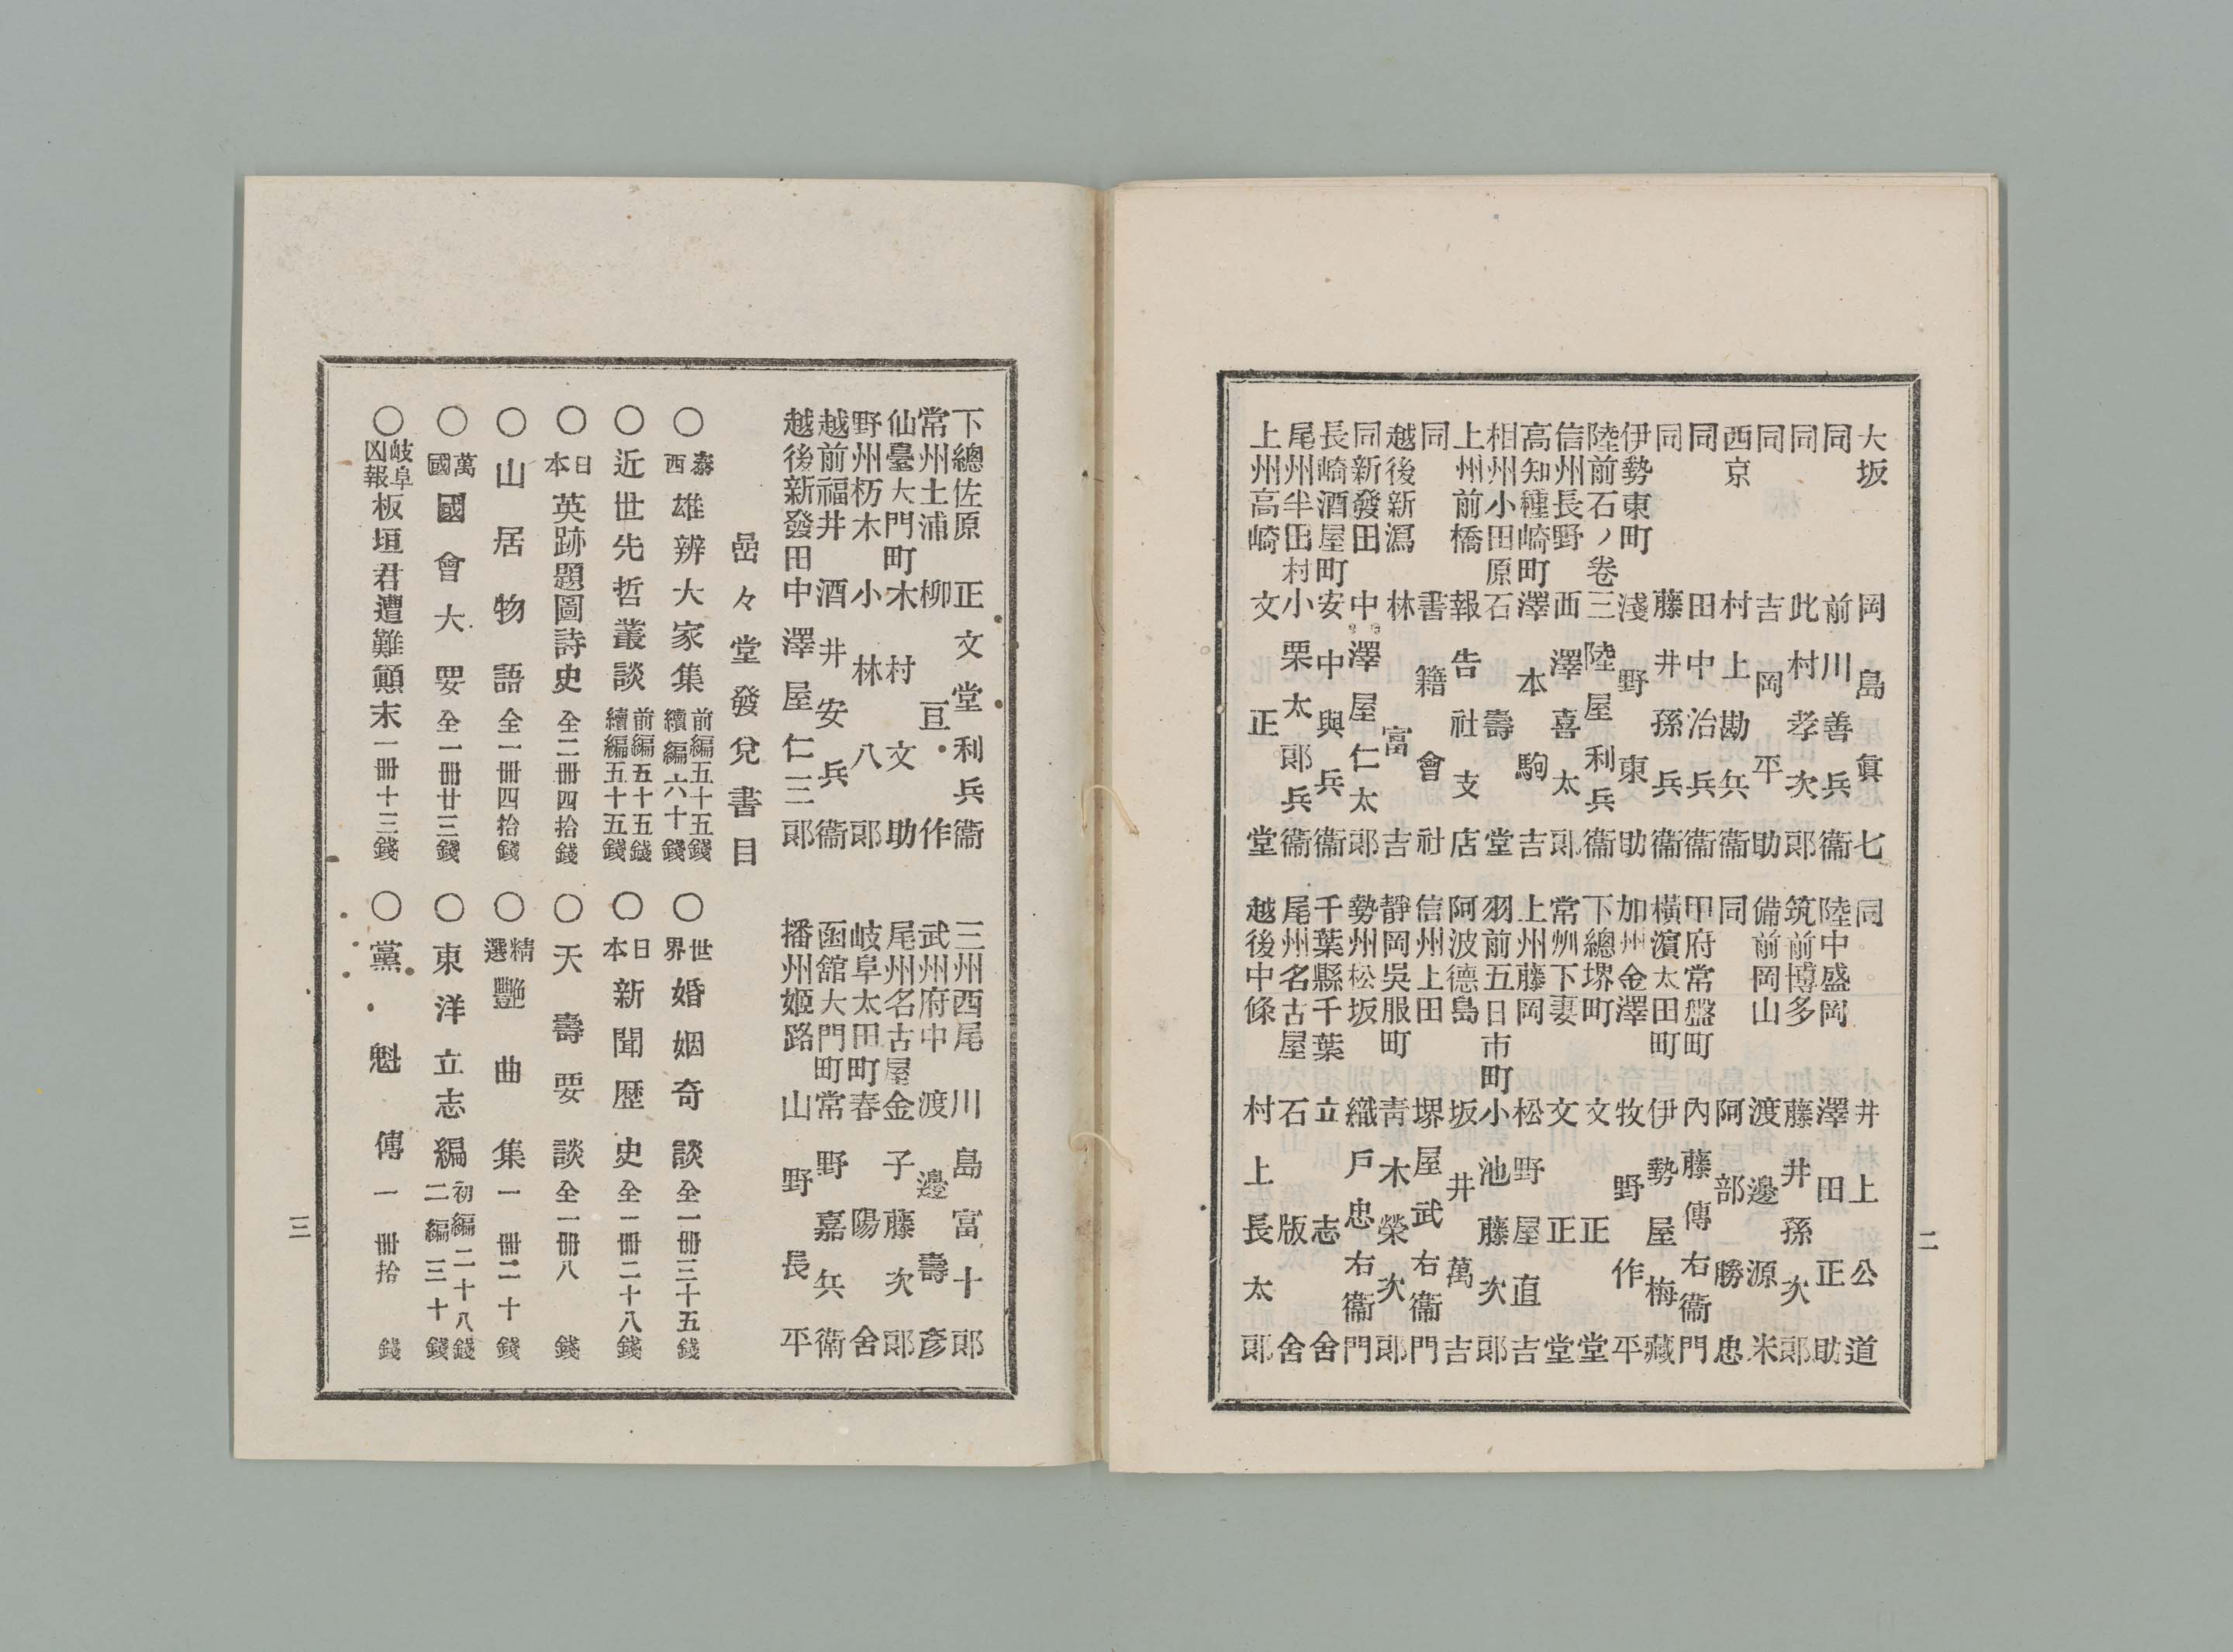 大坂 岡島眞七
同 前川善兵衞
同 此村孝次郎
同 吉岡平助
西京 村上勘兵衞
同 田中治兵衞
同 藤井孫兵衞
伊勢東町 淺野東助
陸前石ノ卷 三陸屋利兵衞
信州長野 西澤喜太郎
高知種崎町 澤本駒吉
相州小田原 石壽堂
上州前橋 報告社支店
同 書籍會社
越後新潟 林富吉
同新發田 中澤屋仁太郎
長崎酒屋町 安中與兵衞
尾州半田村 小栗太郎兵衞
上州高崎 文正堂
同 井上公道
陸中盛岡 澤田正助
筑前博多 藤井孫次郎
備前岡山 渡邊源米
同 阿部勝忠
甲府常盤町 内藤傳右衞門
橫濵太田町 伊勢屋梅藏
加州金澤 牧野作平
下總堺町 文正堂
常州下妻 文正堂
上州藤岡 松野屋直吉
羽前五日市町 小池藤次郎
阿波德島 坂井萬吉
信州上田 堺屋武右衞門
靜岡吳服町 青木榮次郎
勢州松坂 織戸忠右衞門
千葉縣千葉 立志舍
尾州名古屋 石版舍
越後中條 村上長太郎
二
下總佐原 正文堂利兵衞
常州土浦 柳亘作
仙臺大門町 木村文助
野州杤木 小林八郎
越前福井 酒井安兵衞
越後新發田 中澤屋仁三郎
三州西尾 川島富十郎
武州府中 渡邊壽彥
尾州名古屋 金子藤次郎
岐阜太田町 春陽舍
函舘大門町 常野嘉兵衛
播州姬路 山野長平
嵒々堂發兌書目
○泰西雄辨大家集 前編五十五錢 續編六十錢
○近世先哲叢談 前編五十五錢 續編五十五錢
○日本英跡題圖詩史 全二冊四拾錢
○山居物語 全一冊四拾錢
○萬國國會大要 全一冊廿三錢
○岐阜凶報板垣君遭難顚末 一冊十三錢
○世界婚姻奇談 全一冊三十五錢
○日本新聞歷史 全一冊二十八錢
○天壽要談 全一冊八錢
○精選艷曲集 一冊二十錢
○東洋立志編 初編二十八錢 二編三十錢
○黨魁傳 一冊拾錢
三